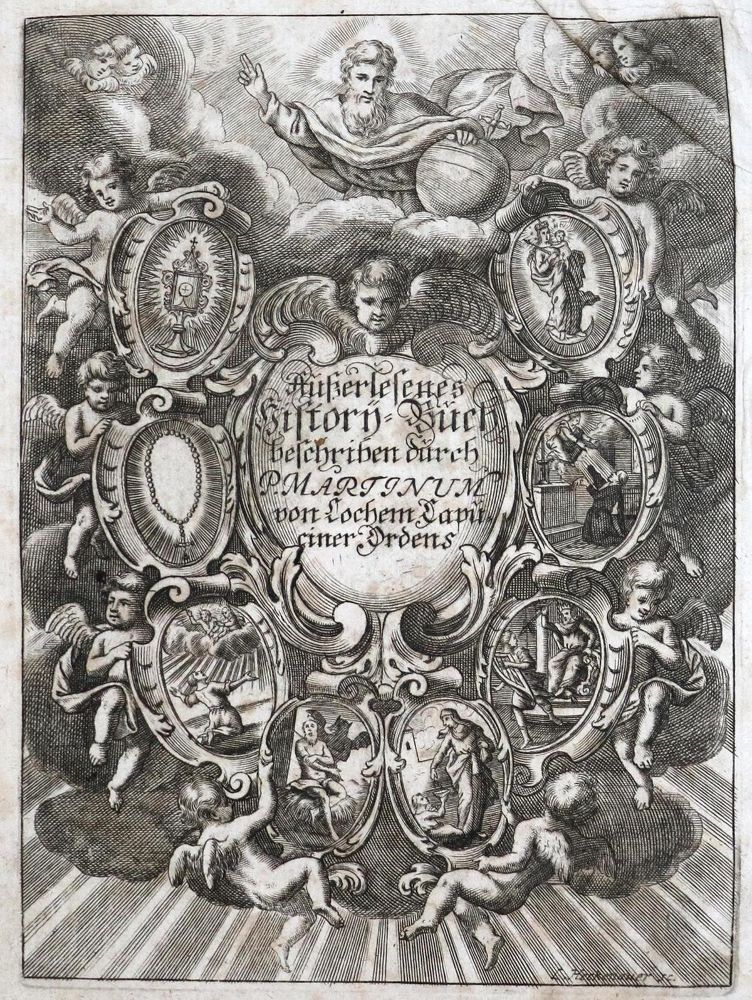 Außerlesenes
History-Buch
beschriben durch
P. MARTINUM
von Cochem Capu-
ciner Ordens
L. Heckenauer sc.